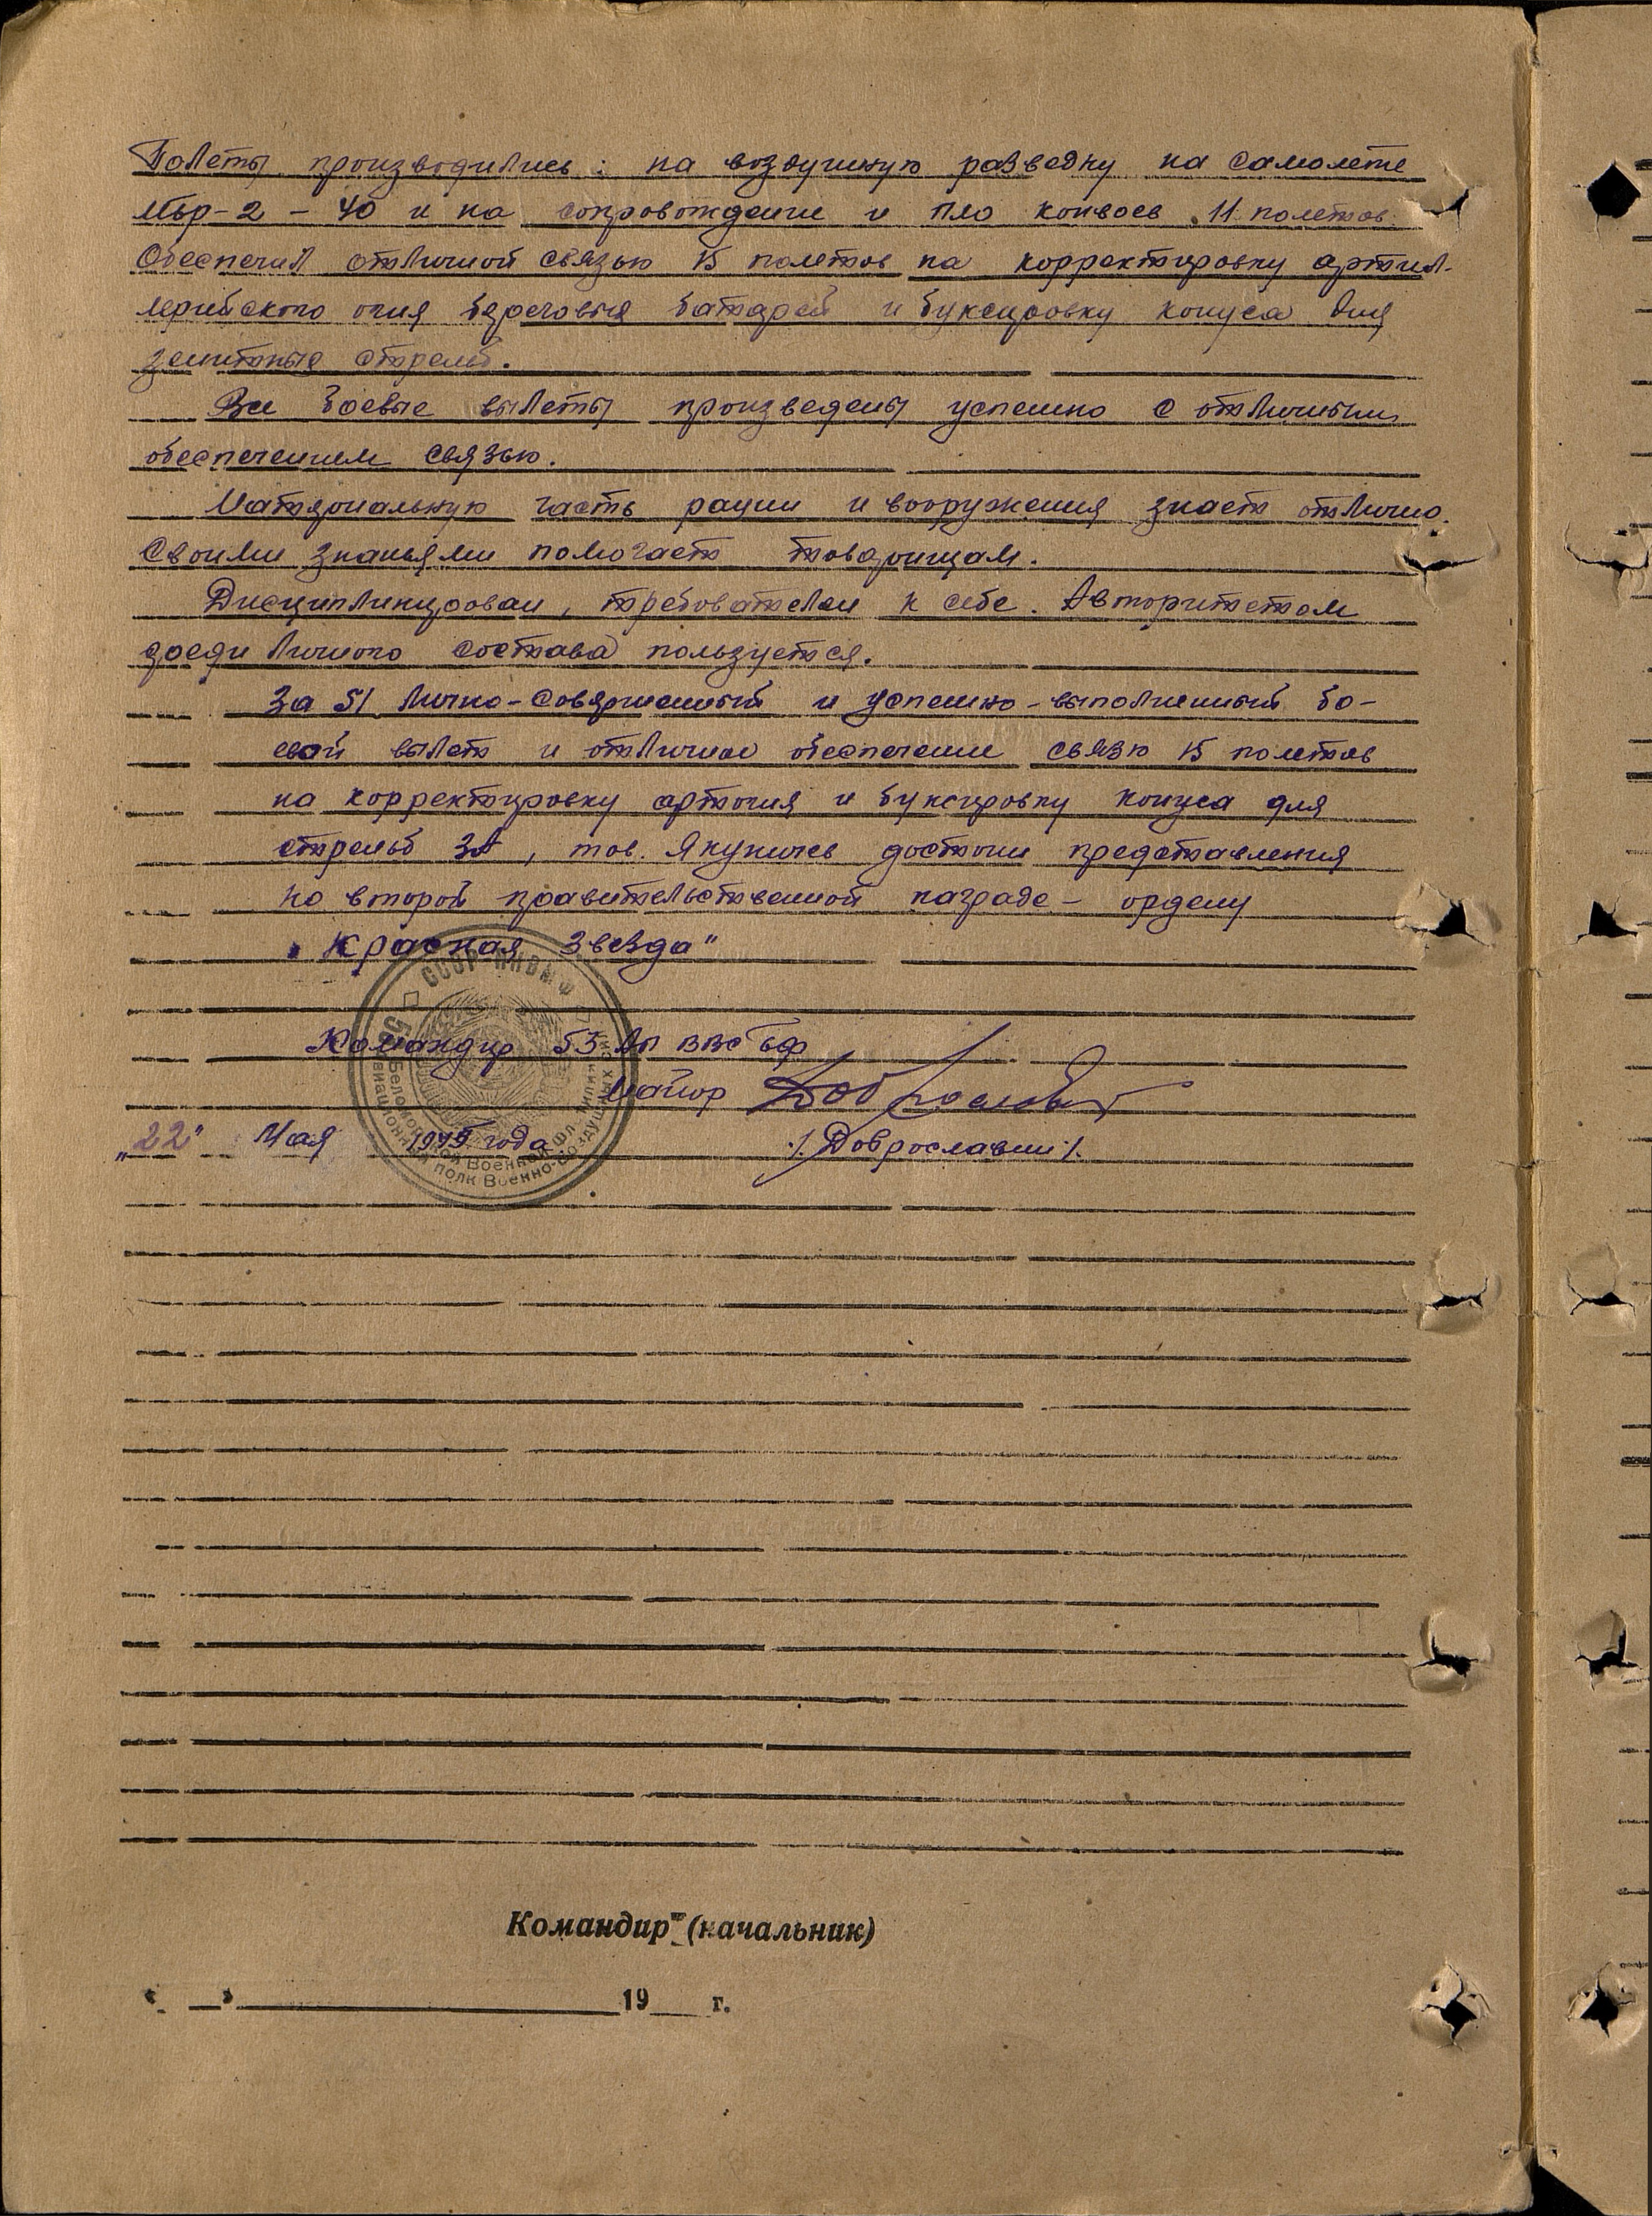 Полеты производились: на воздушную разведку на самолете
МБР-2 - 40 и на сопровождение и ПЛО конвоев 11 полетов.
Обеспечил отличной связью 15 полетов на корректировку артил-
лерийского огня береговых батарей и буксировку конуса для
зенитных стрельб.
Все боевые вылеты произведены успешно с отличным
обеспечением связью.
Материальную часть рации и вооружения знает отлично.
Своими знаньями помогает товарищам.
Дисциплинирован, требователен к себе. Авторитетом
среди личного состава пользуется.
За 51 лично-совершенный и успешно-выполненный бо-
евой вылет и отличное обеспечение связью 15 полетов
на корректировку артогня и буксировку конуса для
стрельб ЗА, тов. Якуничев достоин представления
ко второй правительственной награде - ордену
"Красная Звезда"
Командир 53 АП ВВС БФ
майор
"22" Мая 1945 года /Доброславин/.
СССР-НКВМФ
Беломорской Военной Фл
авиационный полк Военно-Воздушных сил
Командир (начальник)
« » 19 г.